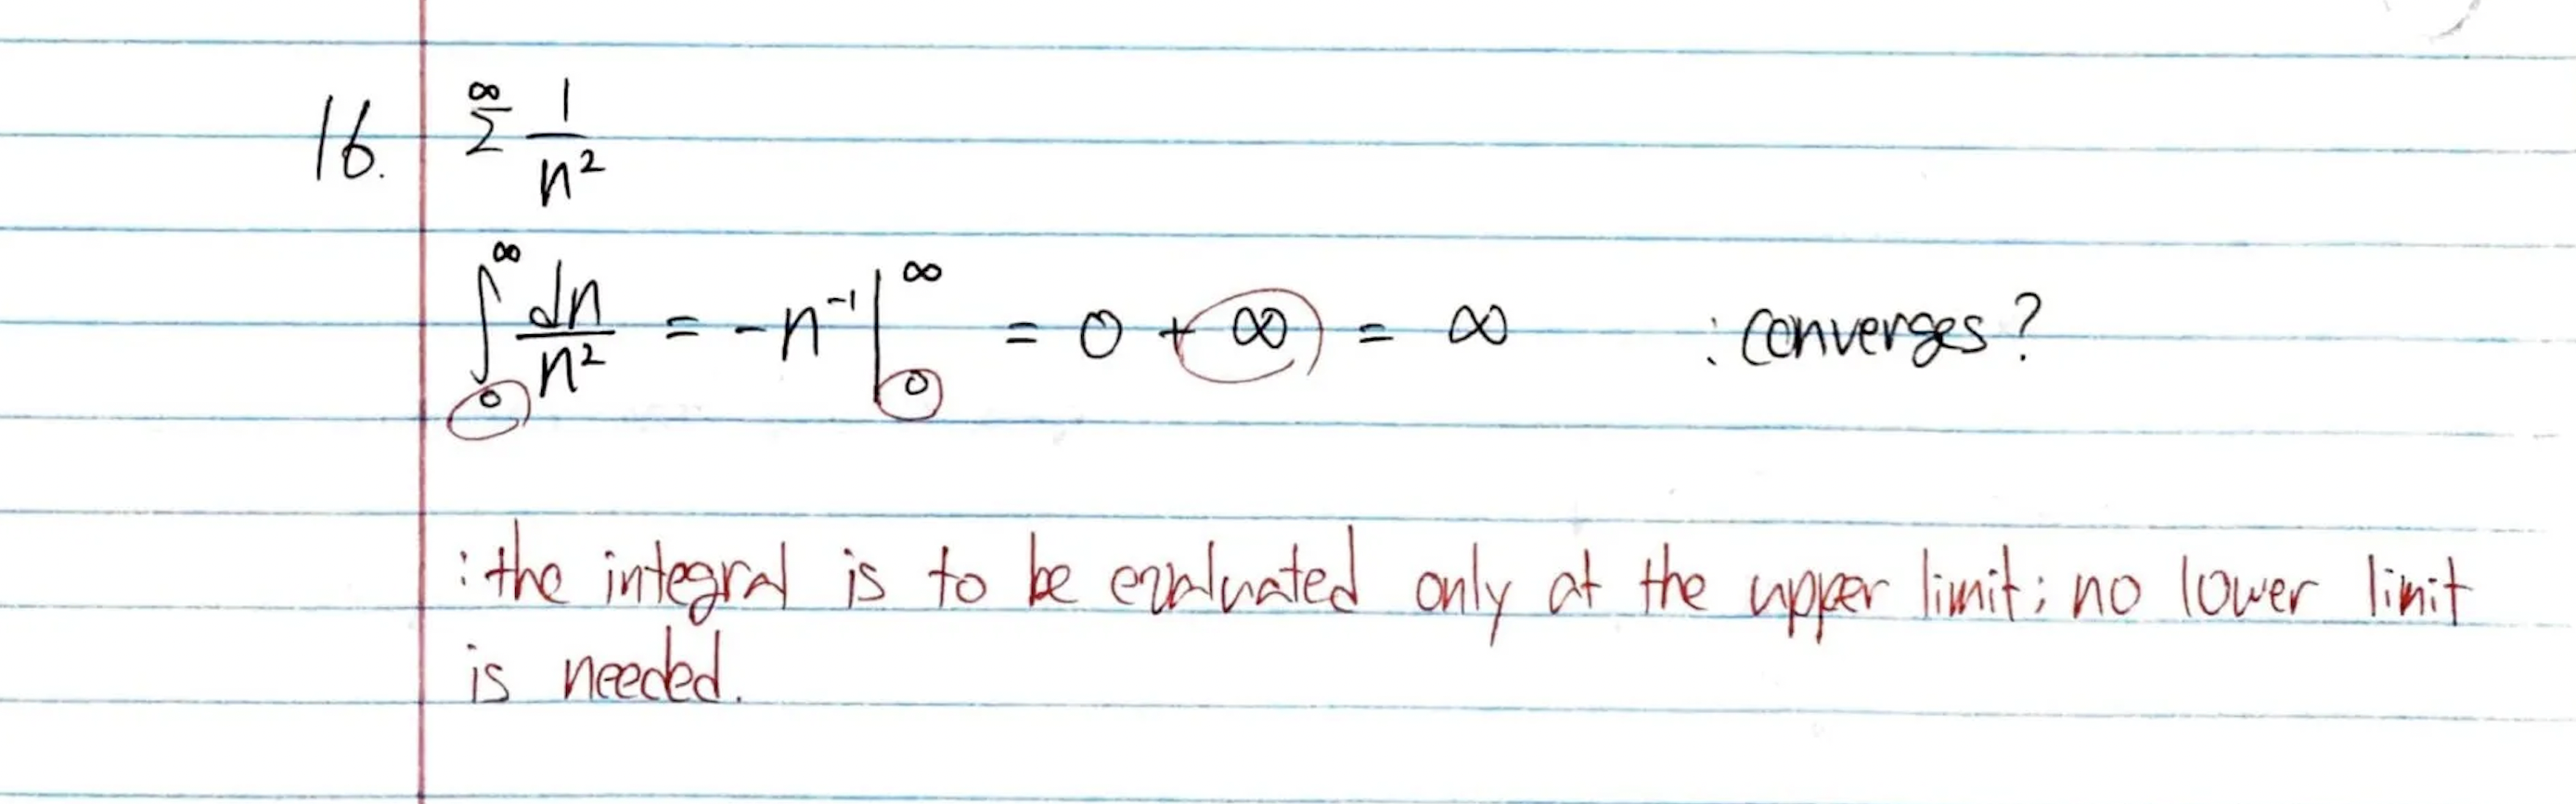 16. ∞ Σ 1/n²
∫₀^∞ dn/n² = -n⁻¹ |₀^∞ = 0 + ∞ = ∞ : converges?
: the integral is to be evaluated only at the upper limit; no lower limit
is needed.